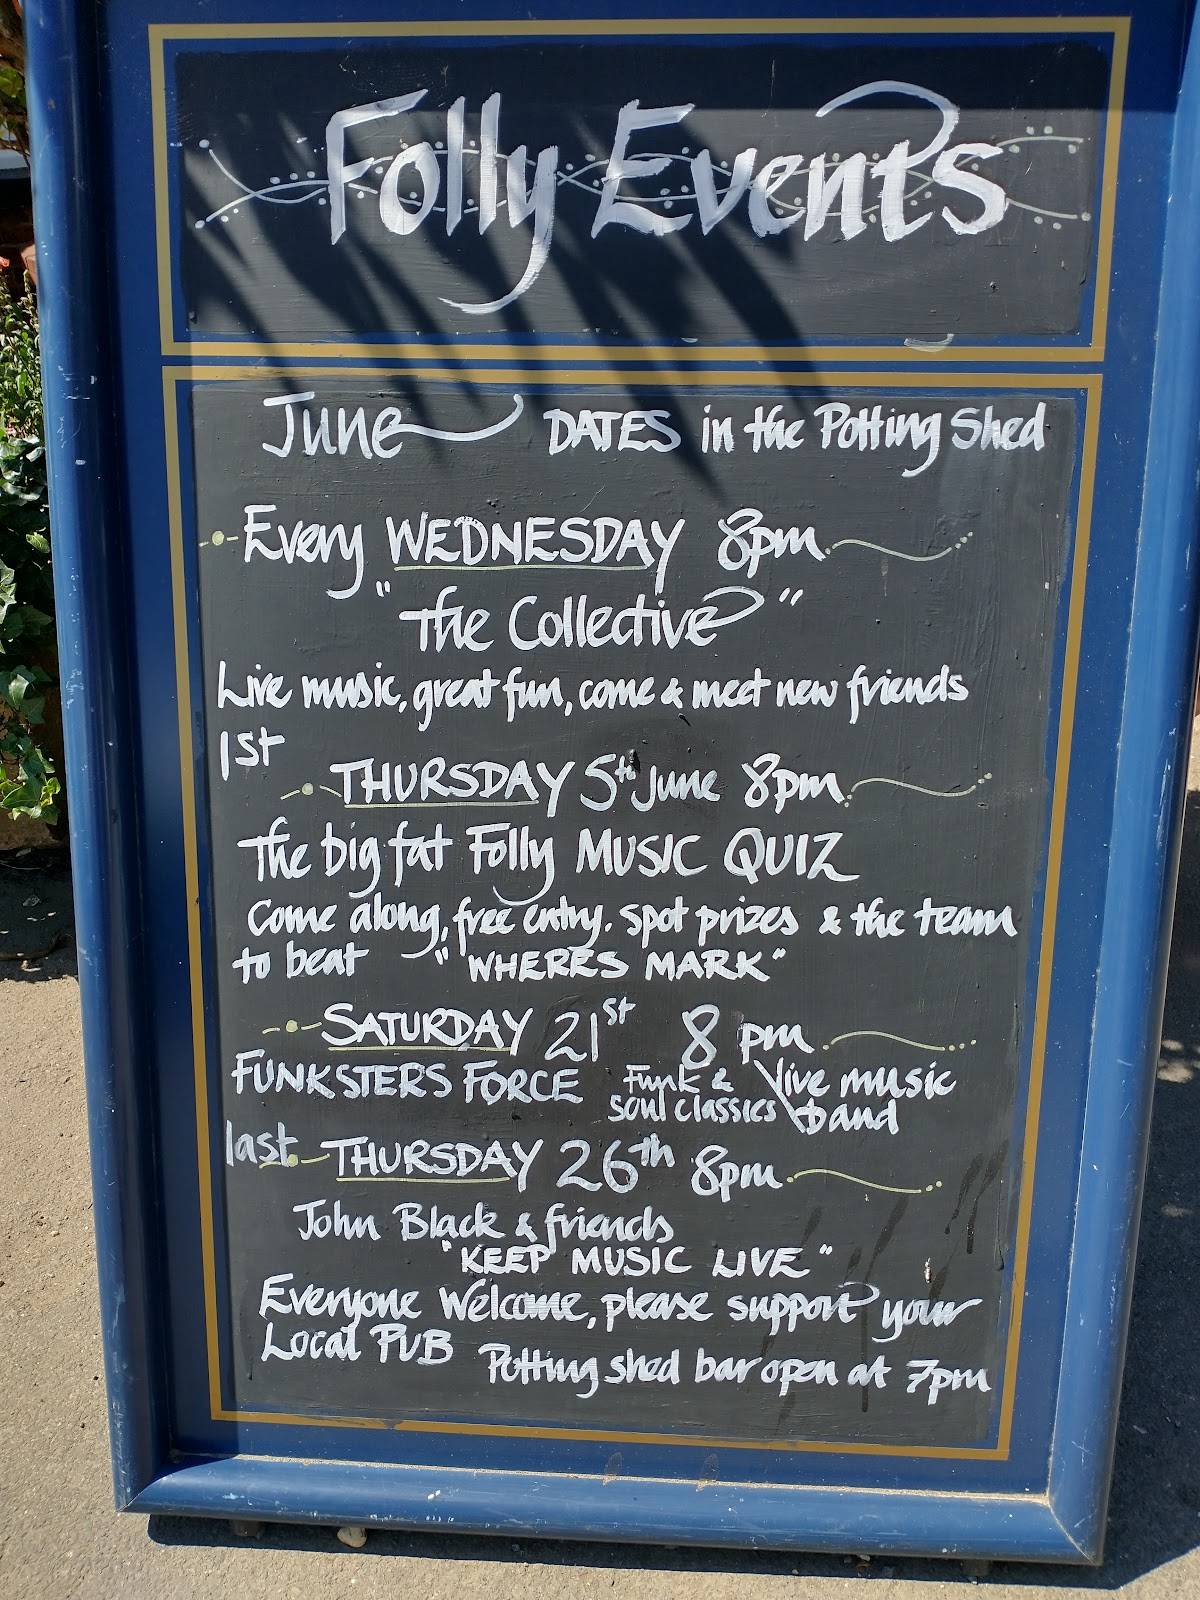 Folly Events
June DATES in the Potting Shed
Every WEDNESDAY 8pm
"The Collective"
Live music, great fun, come & meet new friends
1st THURSDAY 5th June 8pm
The big fat Folly MUSIC QUIZ
Come along, free entry. spot prizes & the team
to beat "WHERES MARK"
SATURDAY 21st 8 pm
FUNKSTERS FORCE Funk & soul classics \ live music band
last THURSDAY 26th 8pm
John Black & friends
"KEEP MUSIC LIVE"
Everyone Welcome, please support your
Local PUB Potting shed bar open at 7pm